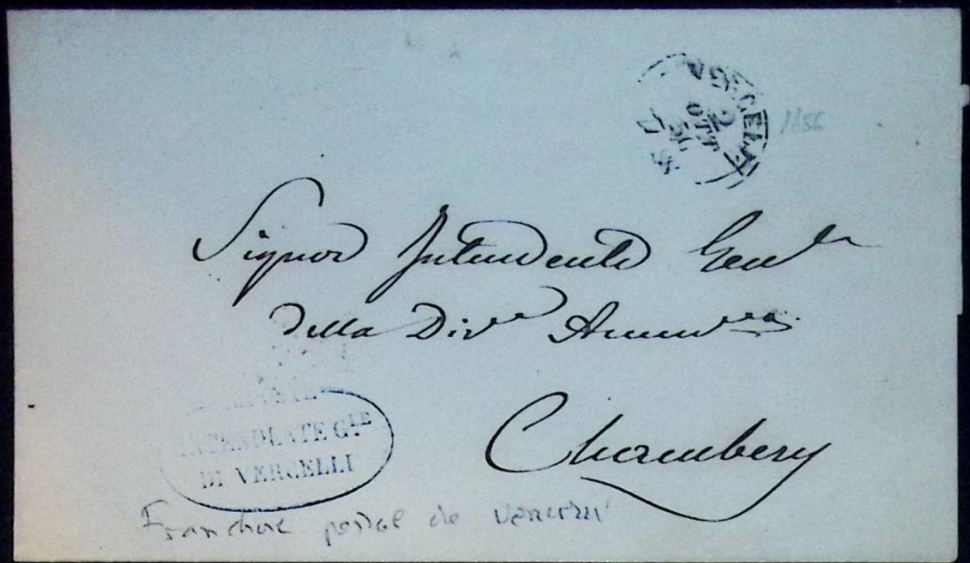 VERCELLI
2
OTT
56
1856
Signor Intendente Gen.le
della Div.e Ammva.
Chambery
R. POSTE
INTENDENTE G.LE
DI VERCELLI
Franchise postal de